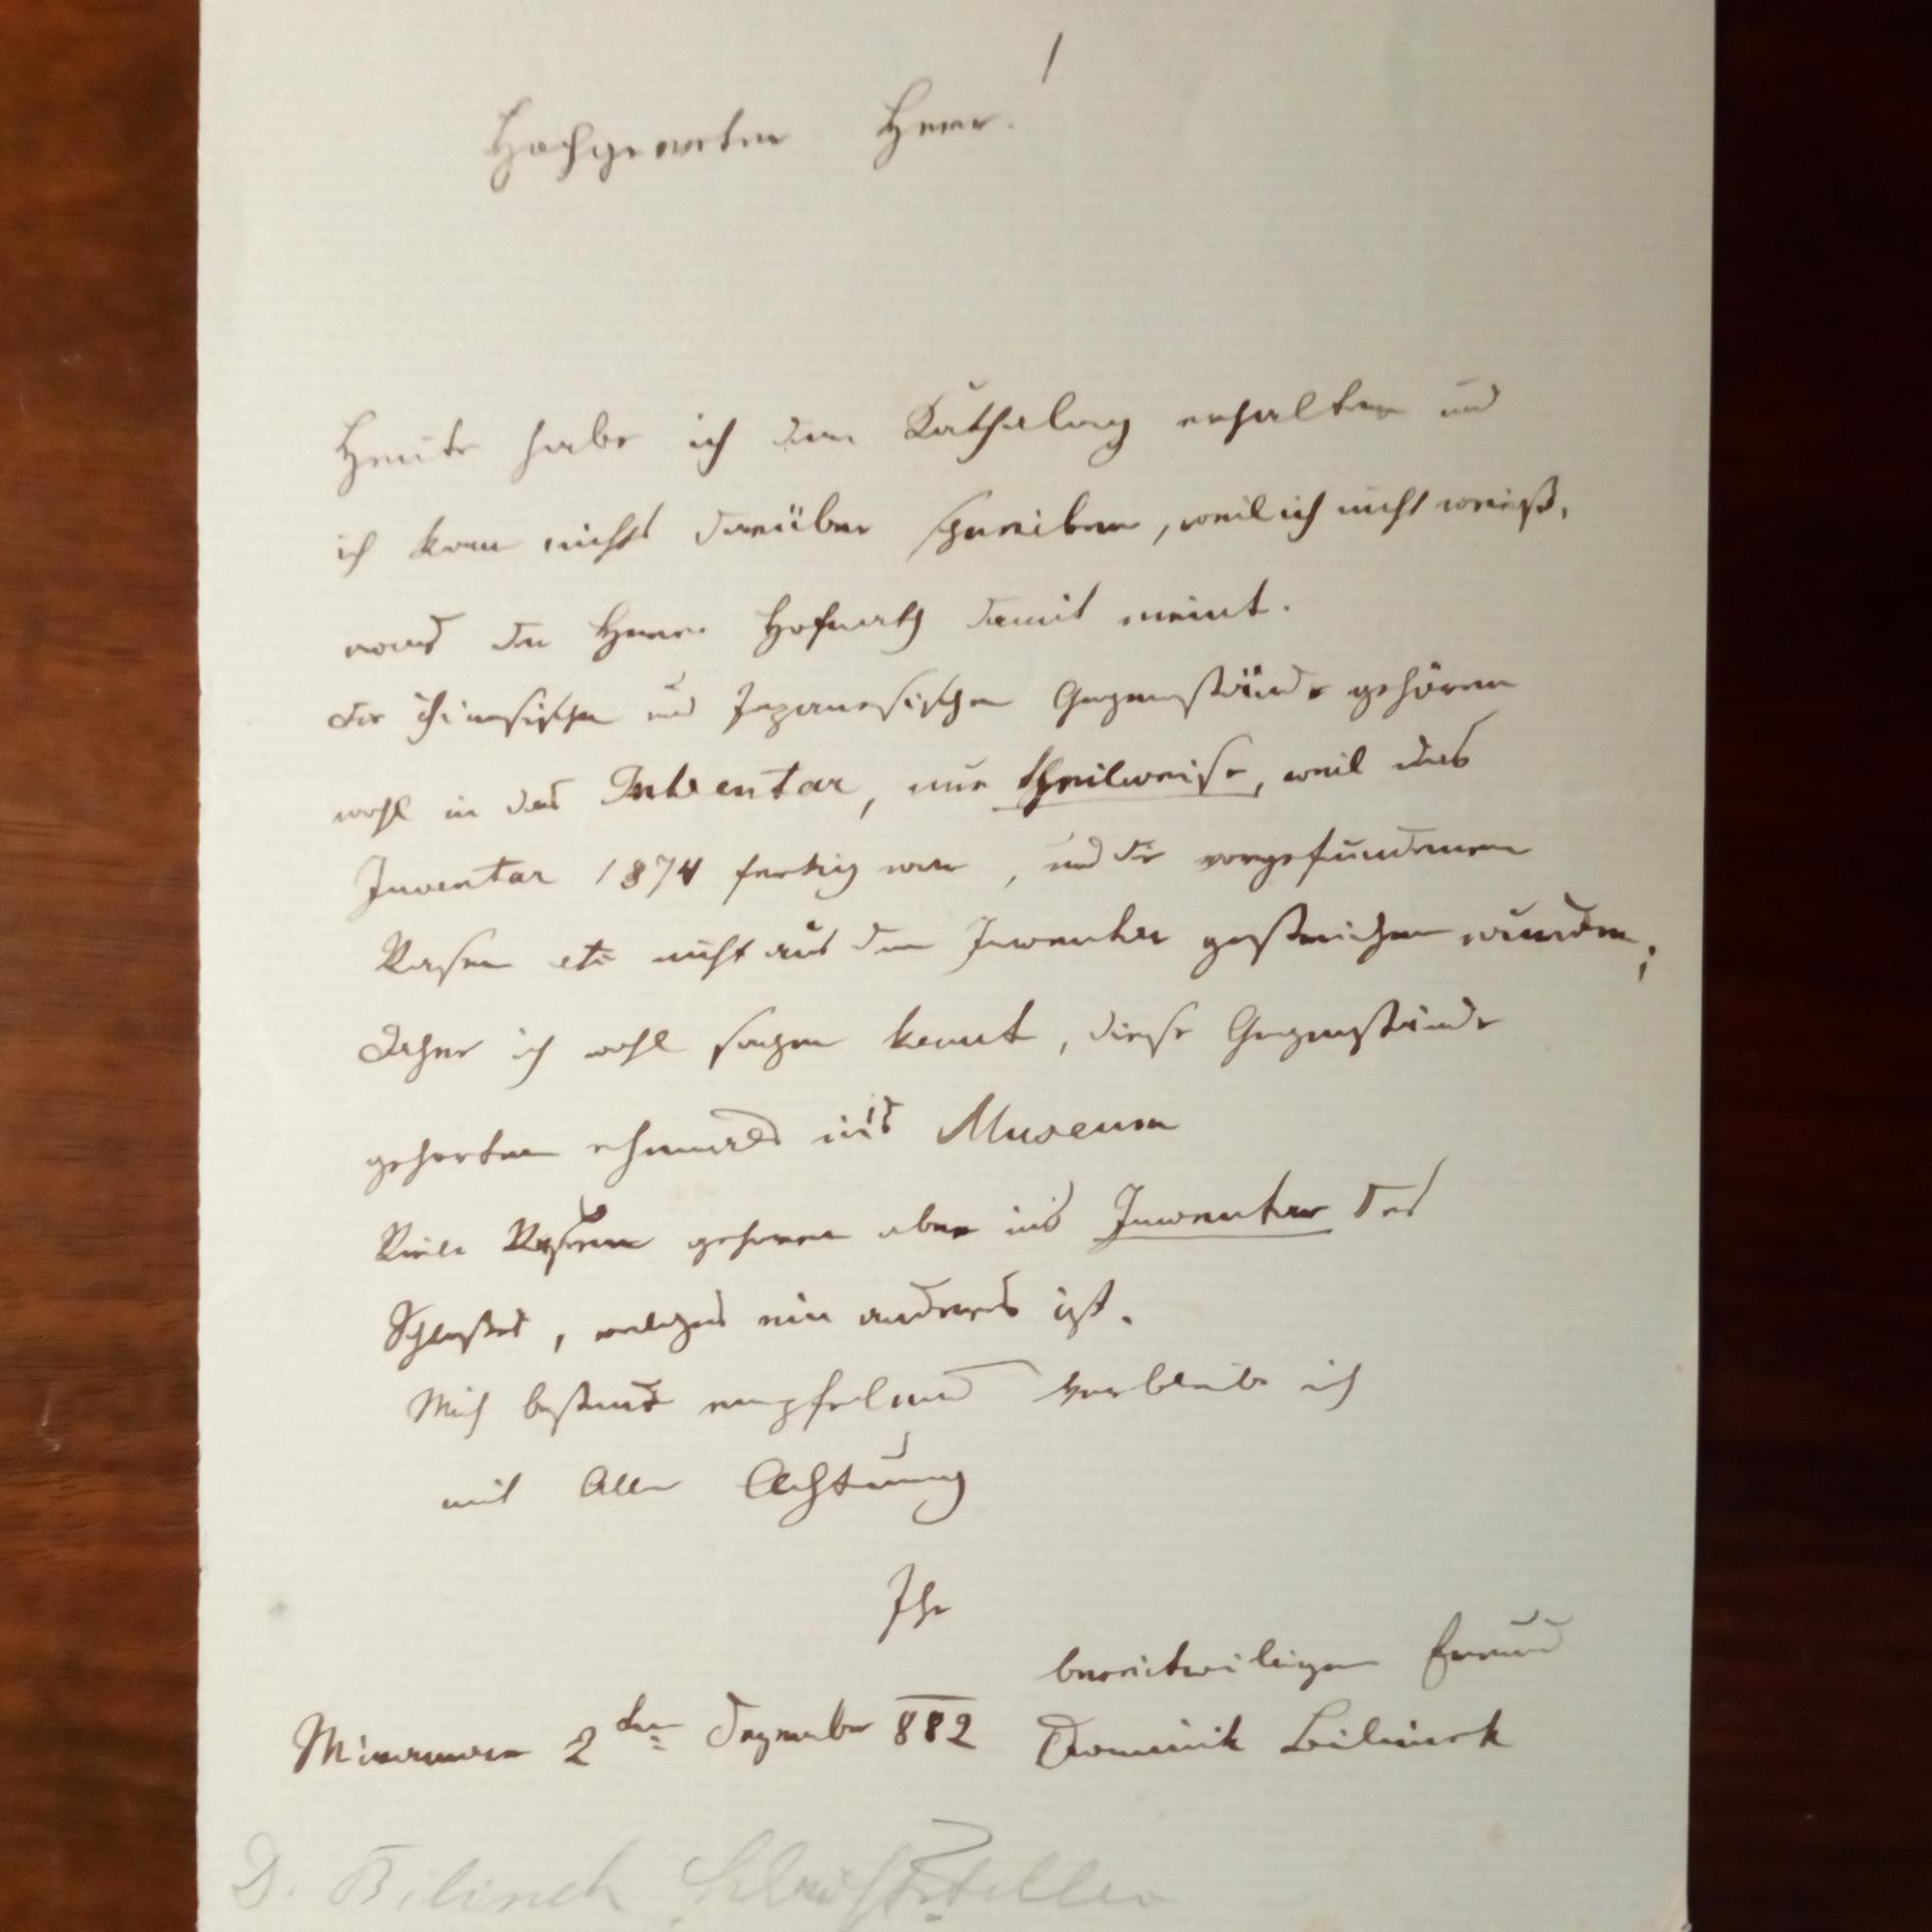 Hochgeerter Herr!
Heute habe ich den Kathalog erhalten und
ich kann nichts darüber schreiben, weil ich nicht weiß,
was der Herr Hofrath damit meint.
die chinesischen und Japanesischen Gegenstände gehören
wohl in das Inventar, nur theilweise, weil das
Inventar 1874 fertig war, und die vorgefundenen
Vasen etc nicht aus dem Inventar gestrichen wurden;
Daher ich wohl sagen kennt, diese Gegenstände
geherten ehmals ins Museum
Viele Vasen geheren aber ins Inventar des
Schloßes, welches ein anderes ist.
Mich bestens empfelend verbleibe ich
mit Aller Achtung
Ihr
bereitwiligen Freund
Miramare 2ten Dezember 882 Dominik Bilimek
D. Bilimek Schriftsteller